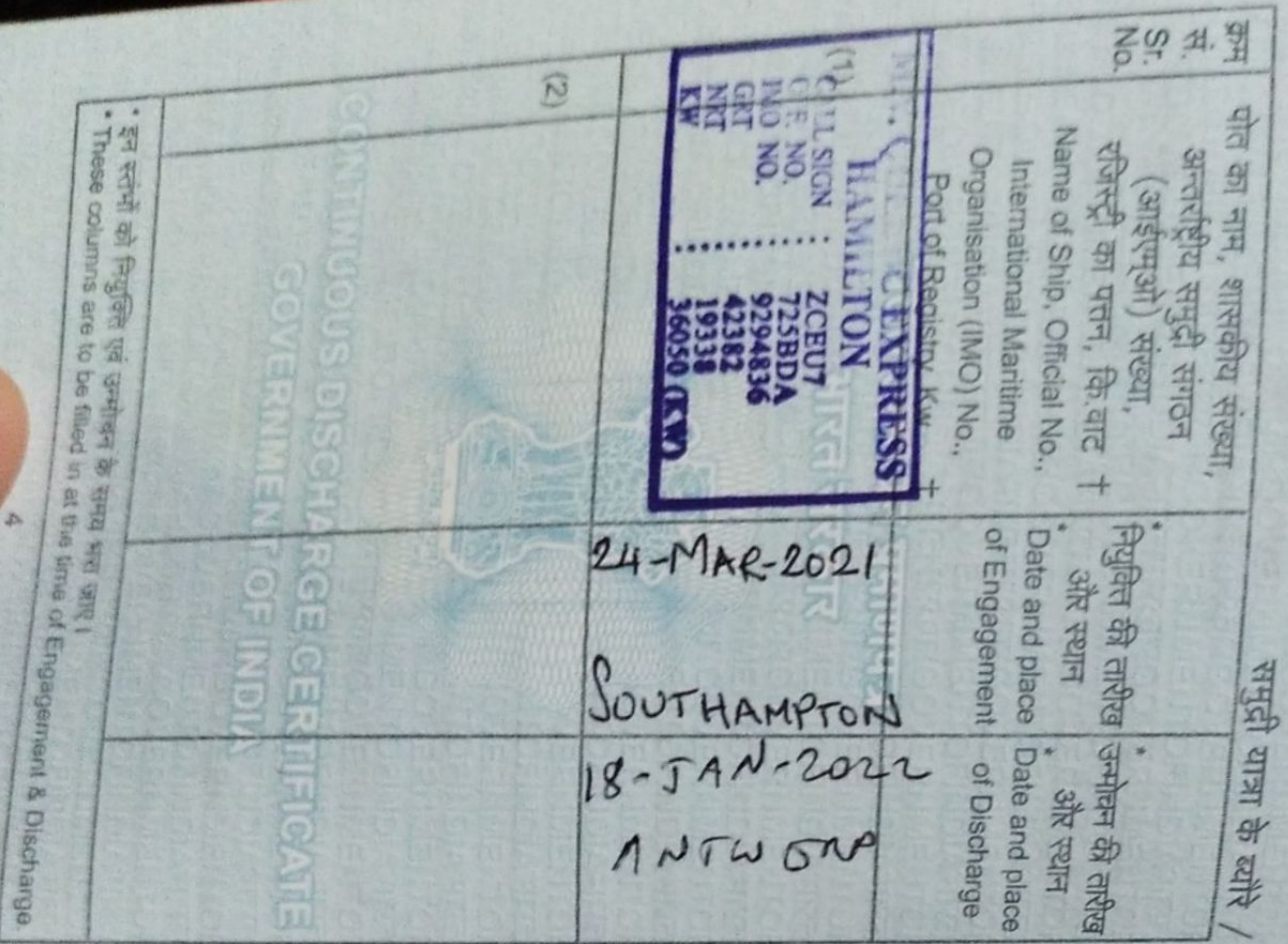 समुद्री यात्रा के ब्यौरे /
क्रम
सं.
Sr.
No.
पोत का नाम, शासकीय संख्या,
अन्तर्राष्ट्रीय समुद्री संगठन
(आईएमओ) संख्या,
रजिस्ट्री का पत्तन, कि.वाट †
Name of Ship, Official No.,
International Maritime
Organisation (IMO) No.,
Port of Registry, Kw †
* नियुक्ति की तारीख
और स्थान
* Date and place
of Engagement
* उन्मोचन की तारीख
और स्थान
* Date and place
of Discharge
(1)
EXPRESS
HAMILTON
CALL SIGN : ZCEU7
NO. : 725BDA
IMO NO. : 9294836
GRT : 42382
NRT : 19338
KW : 36050 (KW)
24-MAR-2021
SOUTHAMPTON
18-JAN-2022
ANTWERP
(2)
CONTINUOUS DISCHARGE CERTIFICATE
GOVERNMENT OF INDIA
* इन स्तंभों को नियुक्ति एवं उन्मोचन के समय भरा जाए।
* These columns are to be filled in at the time of Engagement & Discharge.
4